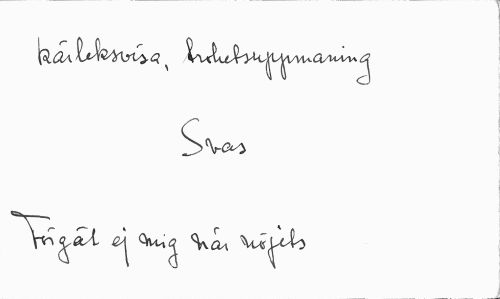 kärleksvisa, trohetsuppmaning
Svas
Förgät ej mig när nöjets